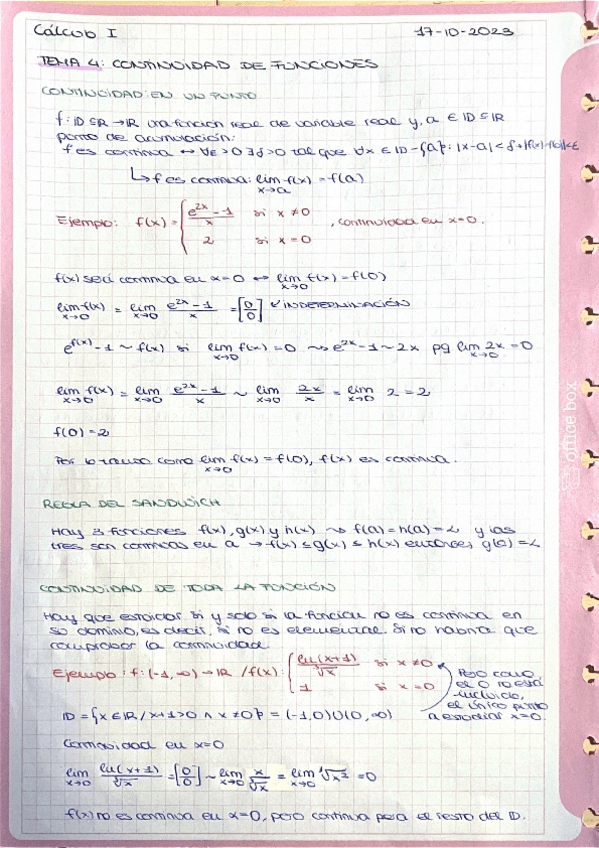 Cálculo I 17-10-2023
TEMA 4: CONTINUIDAD DE FUNCIONES
CONTINUIDAD EN UN PUNTO
f: ID ⊆ IR → IR una función real de variable real y, a ∈ ID ⊆ IR
punto de acumulación:
f es continua ↔ ∀ε > 0 ∃δ > 0 tal que ∀x ∈ ID - {a}: |x-a| < δ → |f(x)-f(a)| < ε
↳ f es continua: lim x→a f(x) = f(a)
Ejemplo: f(x) = { (e^2x - 1)/x si x ≠ 0 , continuidad en x=0.
2 si x = 0
f(x) será continua en x=0 ↔ lim x→0 f(x) = f(0)
lim x→0 f(x) = lim x→0 (e^2x - 1)/x = [0/0] INDETERMINACIÓN
e^f(x) - 1 ~ f(x) si lim x→0 f(x) = 0 ⇝ e^2x - 1 ~ 2x pq lim x→0 2x = 0
lim x→0 f(x) = lim x→0 (e^2x - 1)/x ~ lim x→0 2x/x = lim x→0 2 = 2
f(0) = 2
Por lo tanto como lim x→0 f(x) = f(0), f(x) es continua.
REGLA DEL SANDWICH
Hay 3 funciones f(x), g(x) y h(x) ⇝ f(a) = h(a) = L y las
tres son continuas en a → f(x) ≤ g(x) ≤ h(x) entonces g(a) = L
CONTINUIDAD DE TODA LA FUNCIÓN
Hay que estudiar si y solo si la función no es continua en
su dominio, es decir, si no es elemental. Si no habría que
comprobar la continuidad.
Ejemplo: f: (-1, ∞) → IR / f(x): { ln(x+1)/∛x si x ≠ 0
1 si x = 0
Pero como
el 0 no está
incluido,
el único punto
a estudiar x=0.
ID = {x ∈ IR / x+1 > 0 ∧ x ≠ 0} = (-1, 0) U (0, ∞)
Continuidad en x=0
lim x→0 ln(x+1)/∛x = [0/0] ~ lim x→0 x/∛x = lim x→0 ∛x² = 0
f(x) no es continua en x=0, pero continua para el resto del ID.
office box